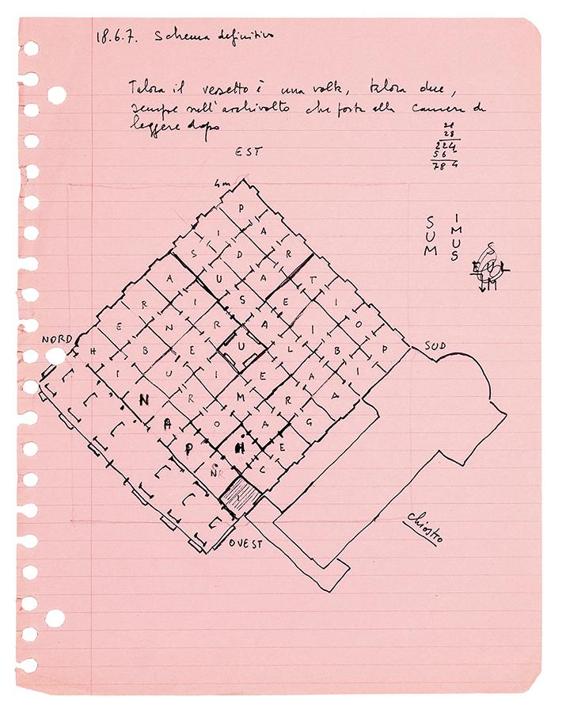 18.6.7. Schema definitivo
Talora il versetto è una volta, talora due,
sempre nell'archivolto che porta alla camera da
leggere dopo
28
28
224
56
784
EST
4m
SUM
IMUS
P
I A
S D R
A U A T
R I S E I
E N R A I O
NORD
SUD
H B E U L B P
I U I E A I
N R M R A
A O A G
P H E
N C
OVEST
chiostro